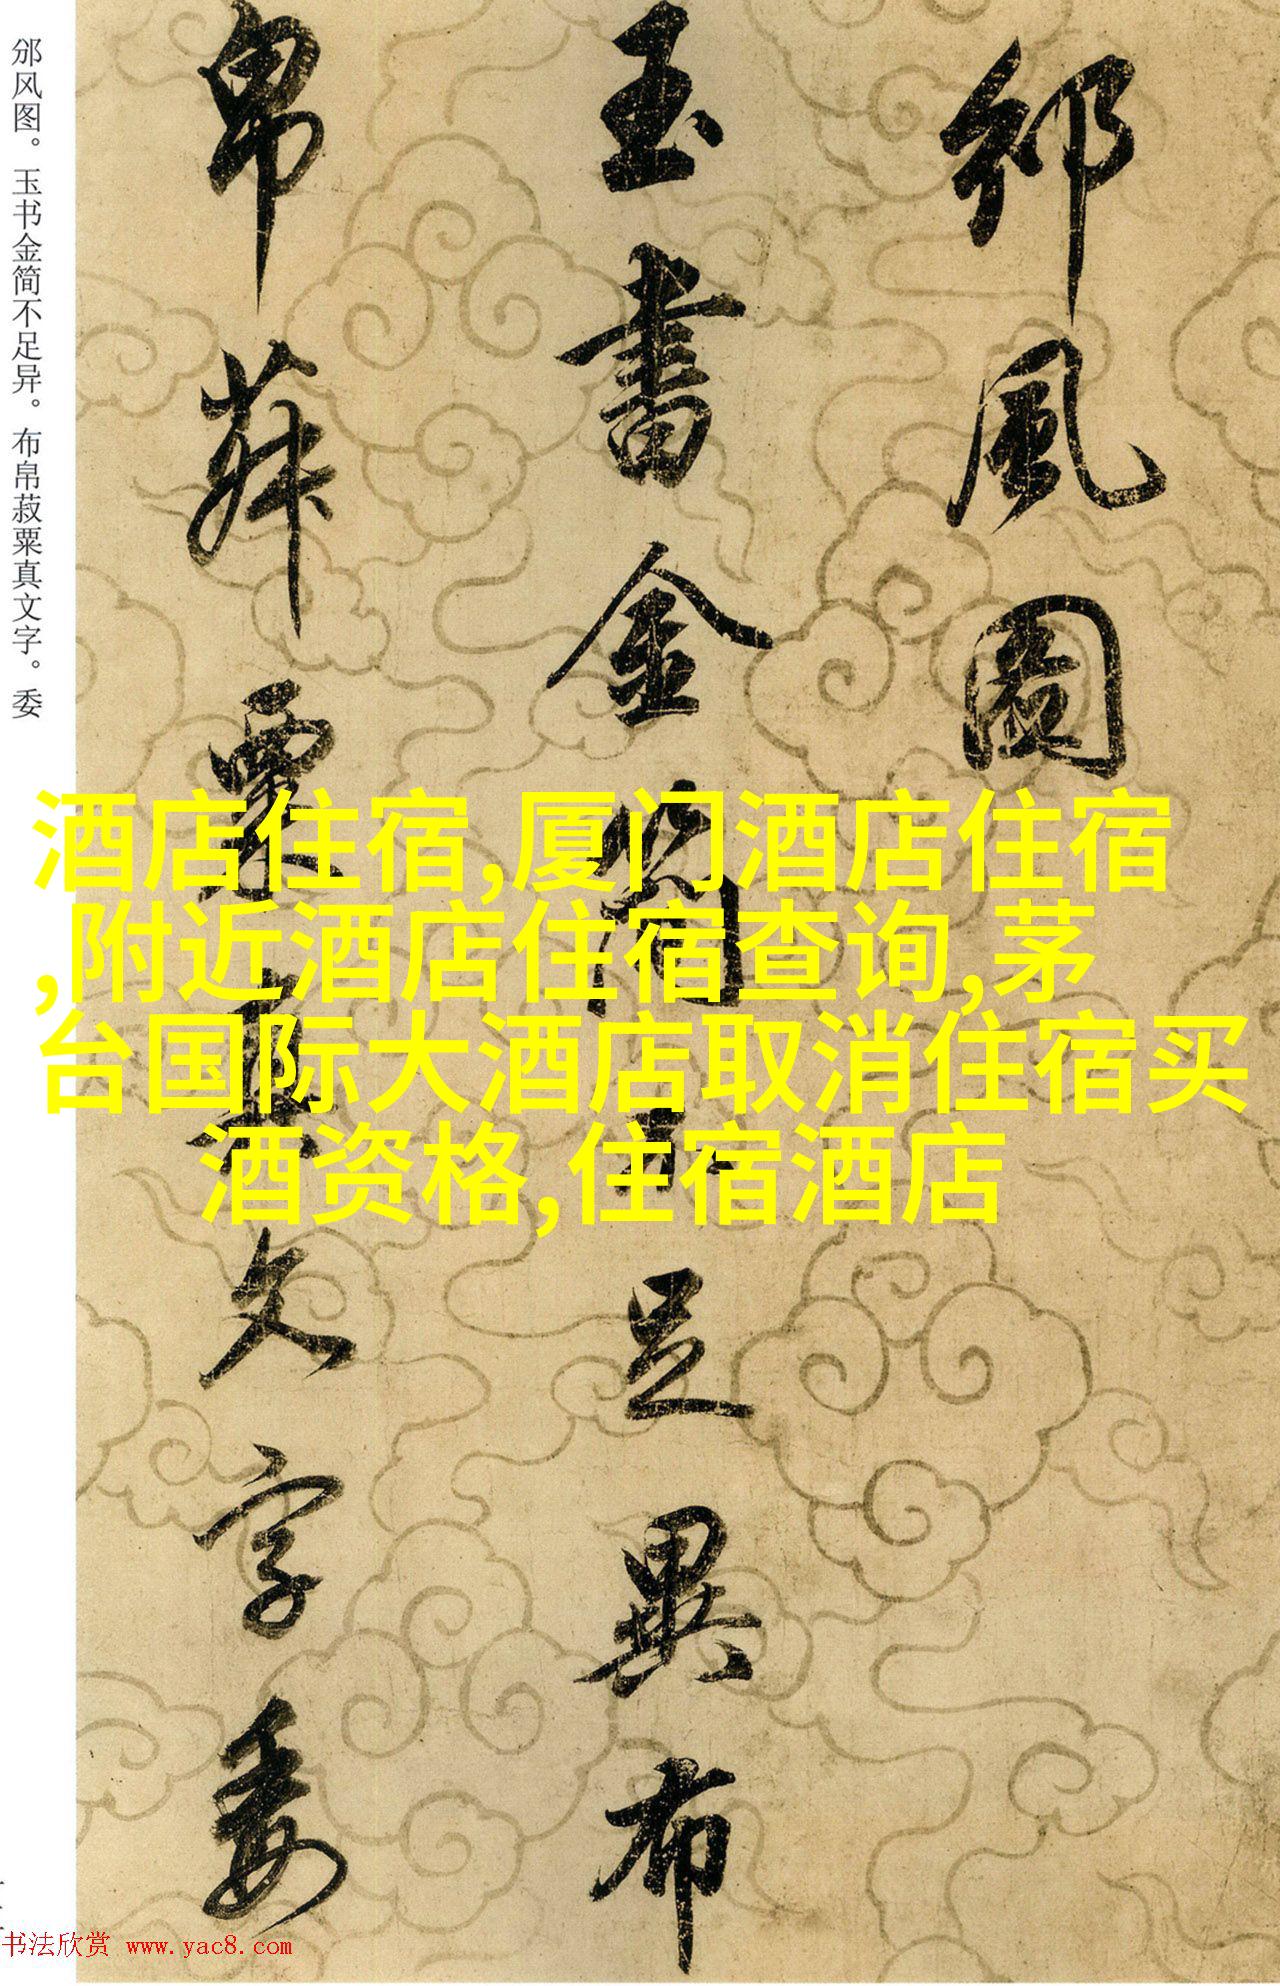 邠风图。玉书金简不足异。布帛菽粟真文字。委
邠風圖
玉書金簡不足異布
帛菽粟真文字委
酒店住宿,厦门酒店住宿
,附近酒店住宿查询,茅
台国际大酒店取消住宿买
酒资格,住宿酒店
书法欣赏 www.yac8.com